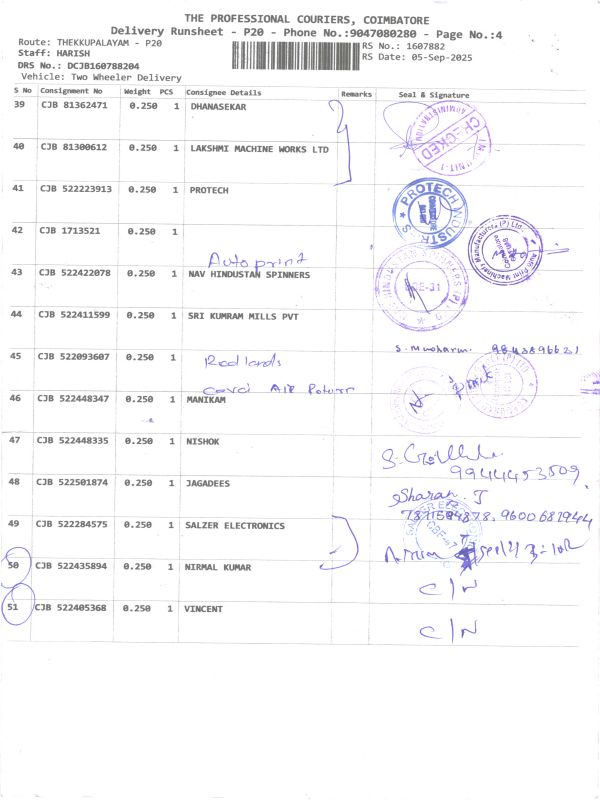 THE PROFESSIONAL COURIERS, COIMBATORE
Delivery Runsheet - P20 - Phone No.:9047080280 - Page No.:4
Route: THEKKUPALAYAM - P20
RS No.: 1607882
Staff: HARISH
RS Date: 05-Sep-2025
DRS No.: DCJB160788204
Vehicle: Two Wheeler Delivery
S No Consignment No Weight PCS Consignee Details Remarks Seal & Signature
39 CJB 81362471 0.250 1 DHANASEKAR
CHECKED
40 CJB 81300612 0.250 1 LAKSHMI MACHINE WORKS LTD
UNIT-1
41 CJB 522223913 0.250 1 PROTECH
PROTECH INDUSTR
42 CJB 1713521 0.250 1
Autoprint
Auto Print Machinery Manufacturers (P) Ltd.
43 CJB 522422078 0.250 1 NAV HINDUSTAN SPINNERS
44 CJB 522411599 0.250 1 SRI KUMRAM MILLS PVT
45 CJB 522093607 0.250 1 Redlands
46 CJB 522448347 0.250 1 MANIKAM
47 CJB 522448335 0.250 1 NISHOK
9944453509
48 CJB 522501874 0.250 1 JAGADEES
Sharan. J
49 CJB 522284575 0.250 1 SALZER ELECTRONICS
50 CJB 522435894 0.250 1 NIRMAL KUMAR
C/N
51 CJB 522405368 0.250 1 VINCENT
C/N